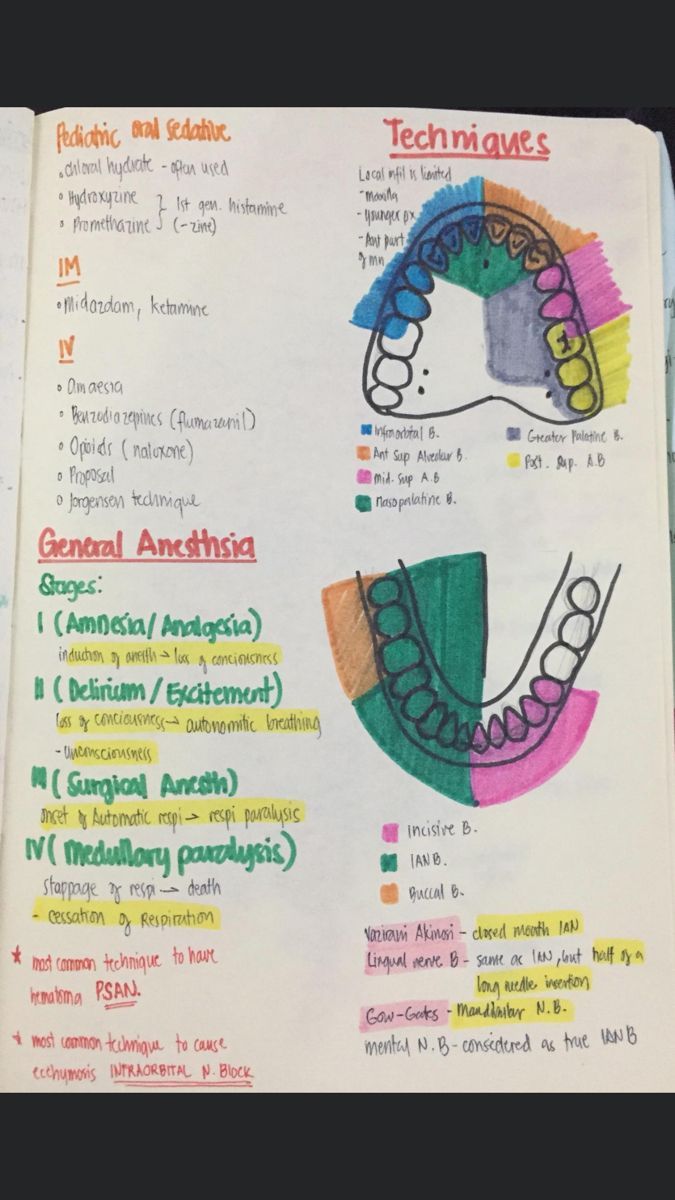 Pediatric oral sedative
• chloral hydrate - often used
• Hydroxyzine
• Promethazine } 1st gen. histamine (-zine)
IM
• Midazolam, ketamine
IV
• Amnesia
• Benzodiazepines (flumazenil)
• Opioids (naloxone)
• Proposal
• Jorgensen technique
General Anesthsia
Stages:
I (Amnesia/Analgesia)
induction of anesth → loss of conciousness
II (Delirium/Excitement)
loss of conciousness → autonomitic breathing
- unconsciousness
III (Surgical Anesth)
onset of Automatic respi → respi paralysis
IV (Medullary paralysis)
stoppage of respi → death
- cessation of Respiration
* most common technique to have
hematoma PSAN.
* most common technique to cause
ecchymosis INFRAORBITAL N. BLOCK
Techniques
Local infil is limited
- maxilla
- younger px
- Ant part
of mn
Infraorbital B.
Ant Sup Alveolar B.
Mid. Sup A.B
Nasopalatine B.
Greater Palatine B.
Post. Sup. A.B
Incisive B.
IANB.
Buccal B.
Vazirani Akinosi - closed mouth IAN
Lingual nerve B - same as IAN, but half of a
long needle insertion
Gow-Gates - Mandibular N.B.
mental N.B - considered as true IANB